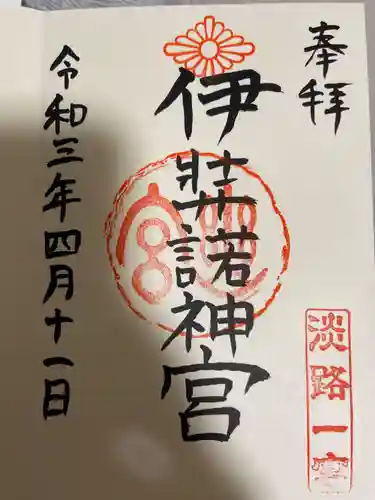 奉拝
伊弉諾神宮
淡路一宮
令和三年四月十一日